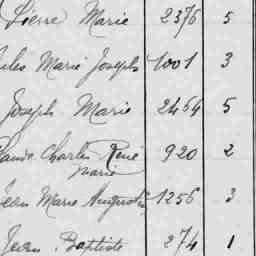 Pierre Marie 2376 5
Jules Marie Joseph 1001 3
Joseph Marie 2464 5
Charles René 920 2
Marie
Jean Marie Augustin 1256 3
Jean Baptiste 274 1